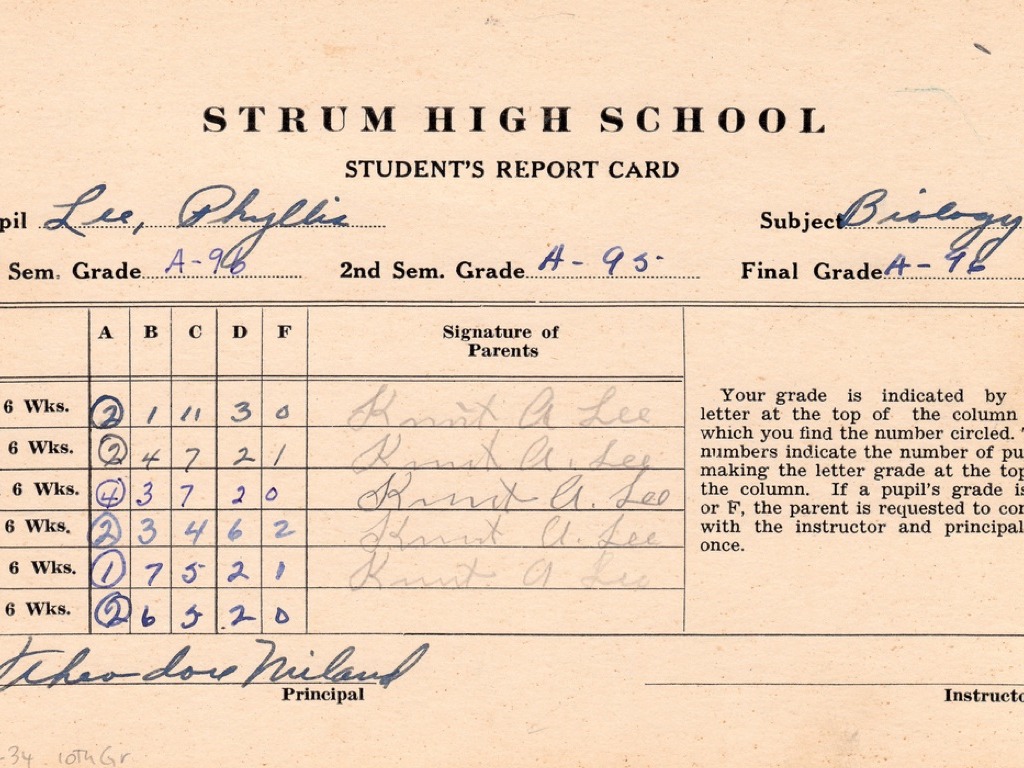 STRUM HIGH SCHOOL
STUDENT'S REPORT CARD
pil Lee, Phyllis Subject Biology
Sem. Grade A-96 2nd Sem. Grade A-95 Final Grade A-96
A B C D F Signature of Parents
6 Wks. 2 1 11 3 0 Knut A Lee
6 Wks. 2 4 7 2 1 Knut A. Lee
6 Wks. 4 3 7 2 0 Knut A. Lee
6 Wks. 2 3 4 6 2 Knut A. Lee
6 Wks. 1 7 5 2 1 Knut A Lee
6 Wks. 2 6 5 2 0
Your grade is indicated by
letter at the top of the column
which you find the number circled. T
numbers indicate the number of pu
making the letter grade at the top
the column. If a pupil's grade is
or F, the parent is requested to con
with the instructor and principal
once.
Theodore Niland
Principal Instructo
-34 10th Gr